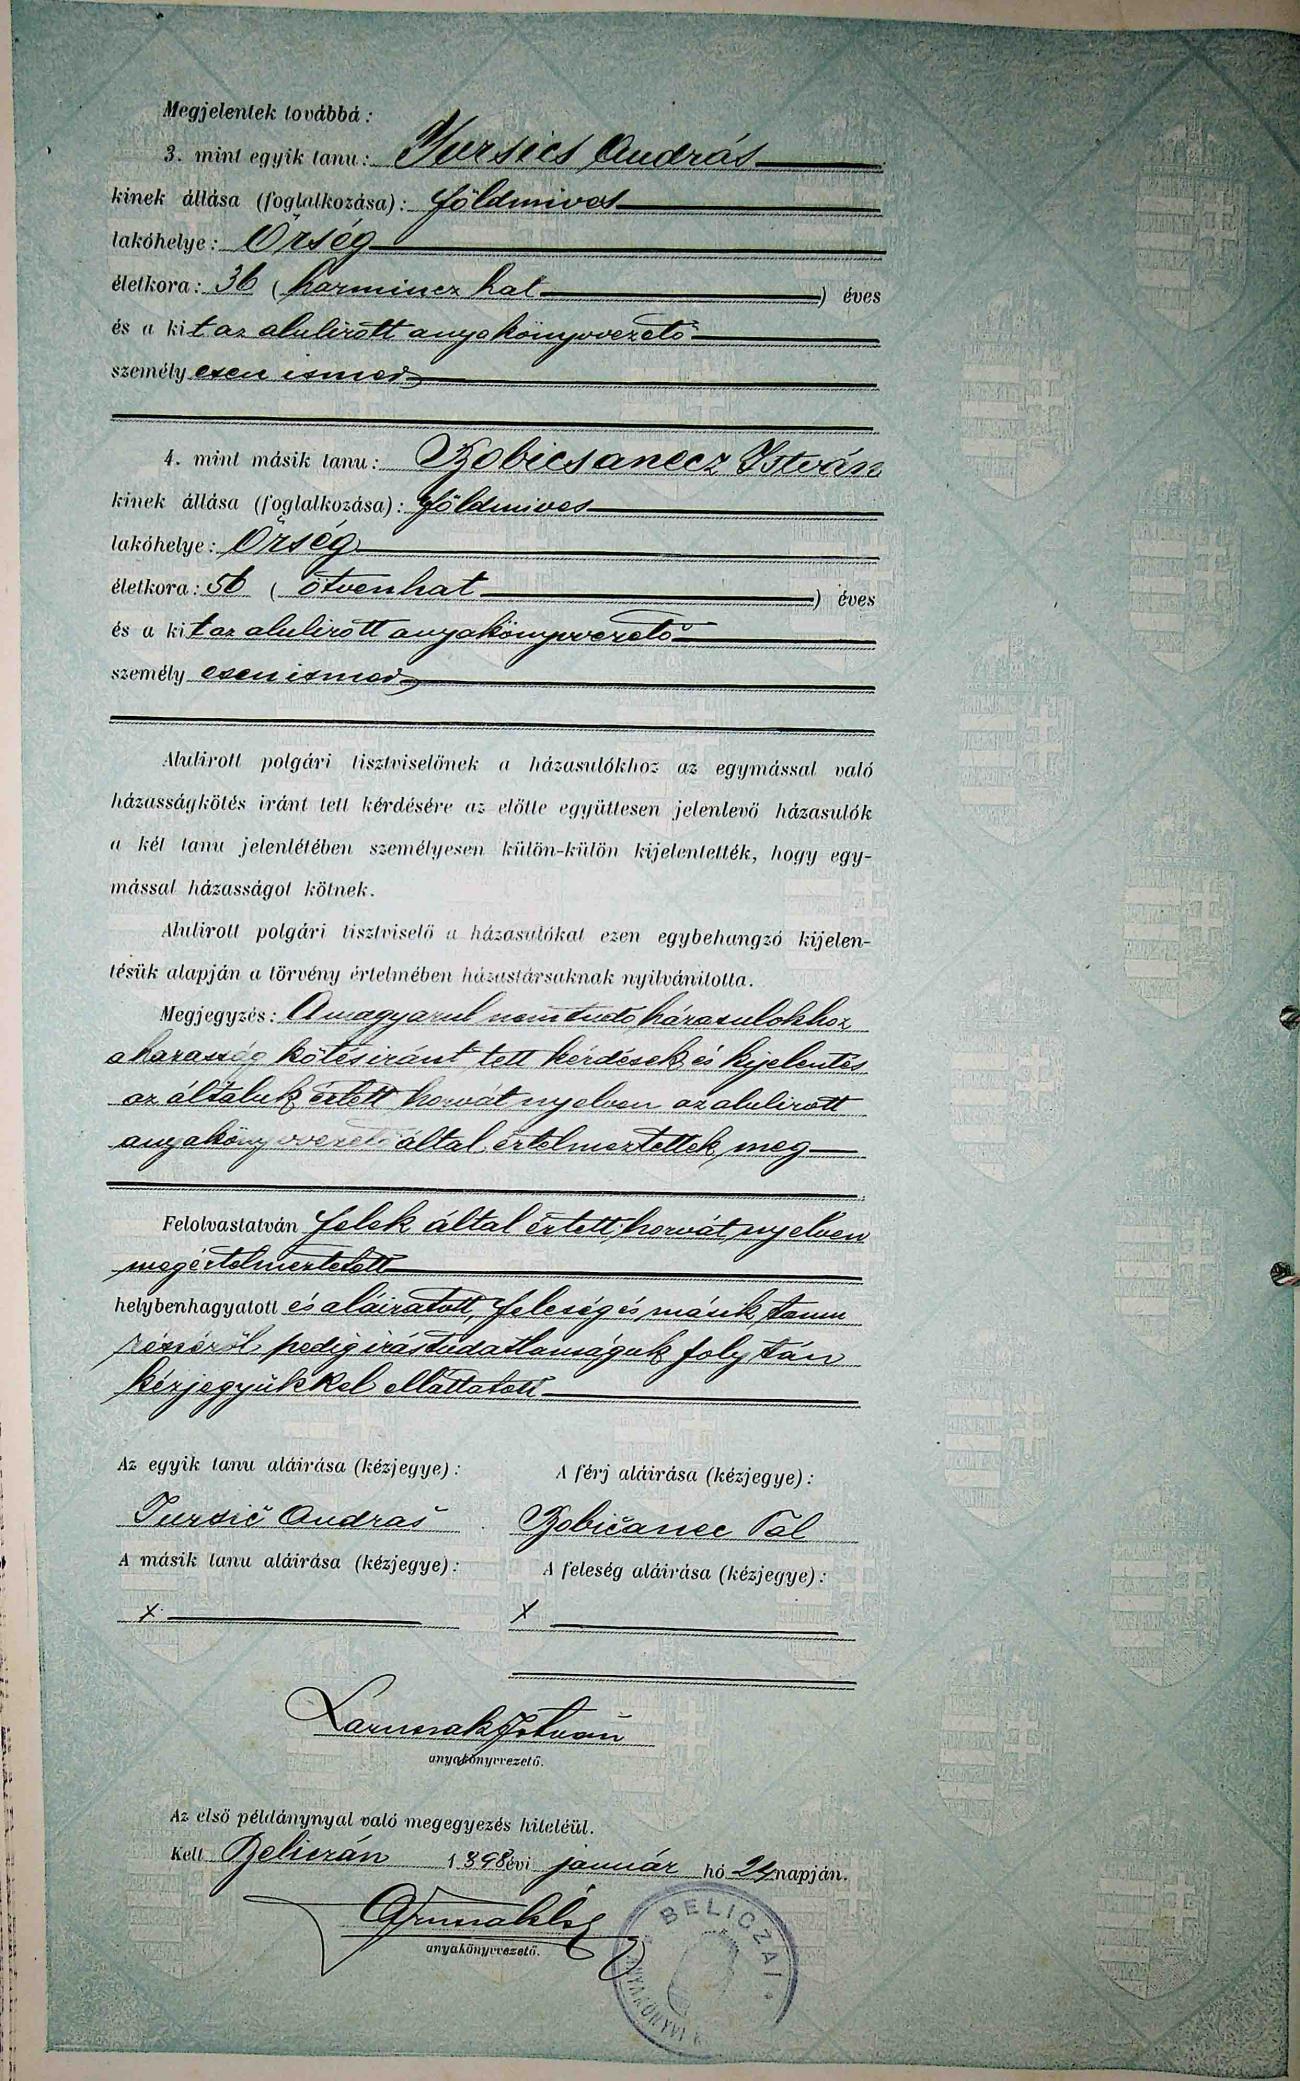 Megjelentek továbbá:
3. mint egyik tanu: Jursics András
kinek állása (foglalkozása): földmives
lakóhelye: Őrség
életkora: 36 (harmincz hat) éves
és a kit az alulirott anyakönyvvezető
személyesen ismer,
4. mint másik tanu: Bobicsanecz István
kinek állása (foglalkozása): földmives
lakóhelye: Őrség
életkora: 56 (ötvenhat) éves
és a kit az alulirott anyakönyvvezető
személyesen ismer,
Alulirott polgári tisztviselőnek a házasulókhoz az egymással való
házasságkötés iránt tett kérdésére az előtte együttesen jelenlevő házasulók
a két tanu jelenlétében személyesen külön-külön kijelentették, hogy egy-
mással házasságot kötnek.
Alulirott polgári tisztviselő a házasulókat ezen egybehangzó kijelen-
tésük alapján a törvény értelmében házastársaknak nyilvánitotta.
Megjegyzés: A magyarul nem tudó házasulokhoz
a hazasság kötés iránt tett kérdések és kijelentés
az általuk értett horvát nyelven az alulirott
anyakönyvvezető által értelmeztettek meg
Felolvastatván felek által értett horvát nyelven
megértelmeztetett
helybenhagyatott és aláiratott, feleség és másik tanu
részéről pedig irástudatlanságuk folytán
kézjegyükkel elláttatott
Az egyik tanu aláirása (kézjegye): A férj aláirása (kézjegye):
Jursič Andraš Bobičanec Pal
A másik tanu aláirása (kézjegye): A feleség aláirása (kézjegye):
x x
István
anyakönyvvezető.
Az első példánynyal való megegyezés hiteléül.
Kelt Beliczán 1898 évi január hó 24 napján.
anyakönyvvezető.
BELICZAI
ANYAKÖNYVI K